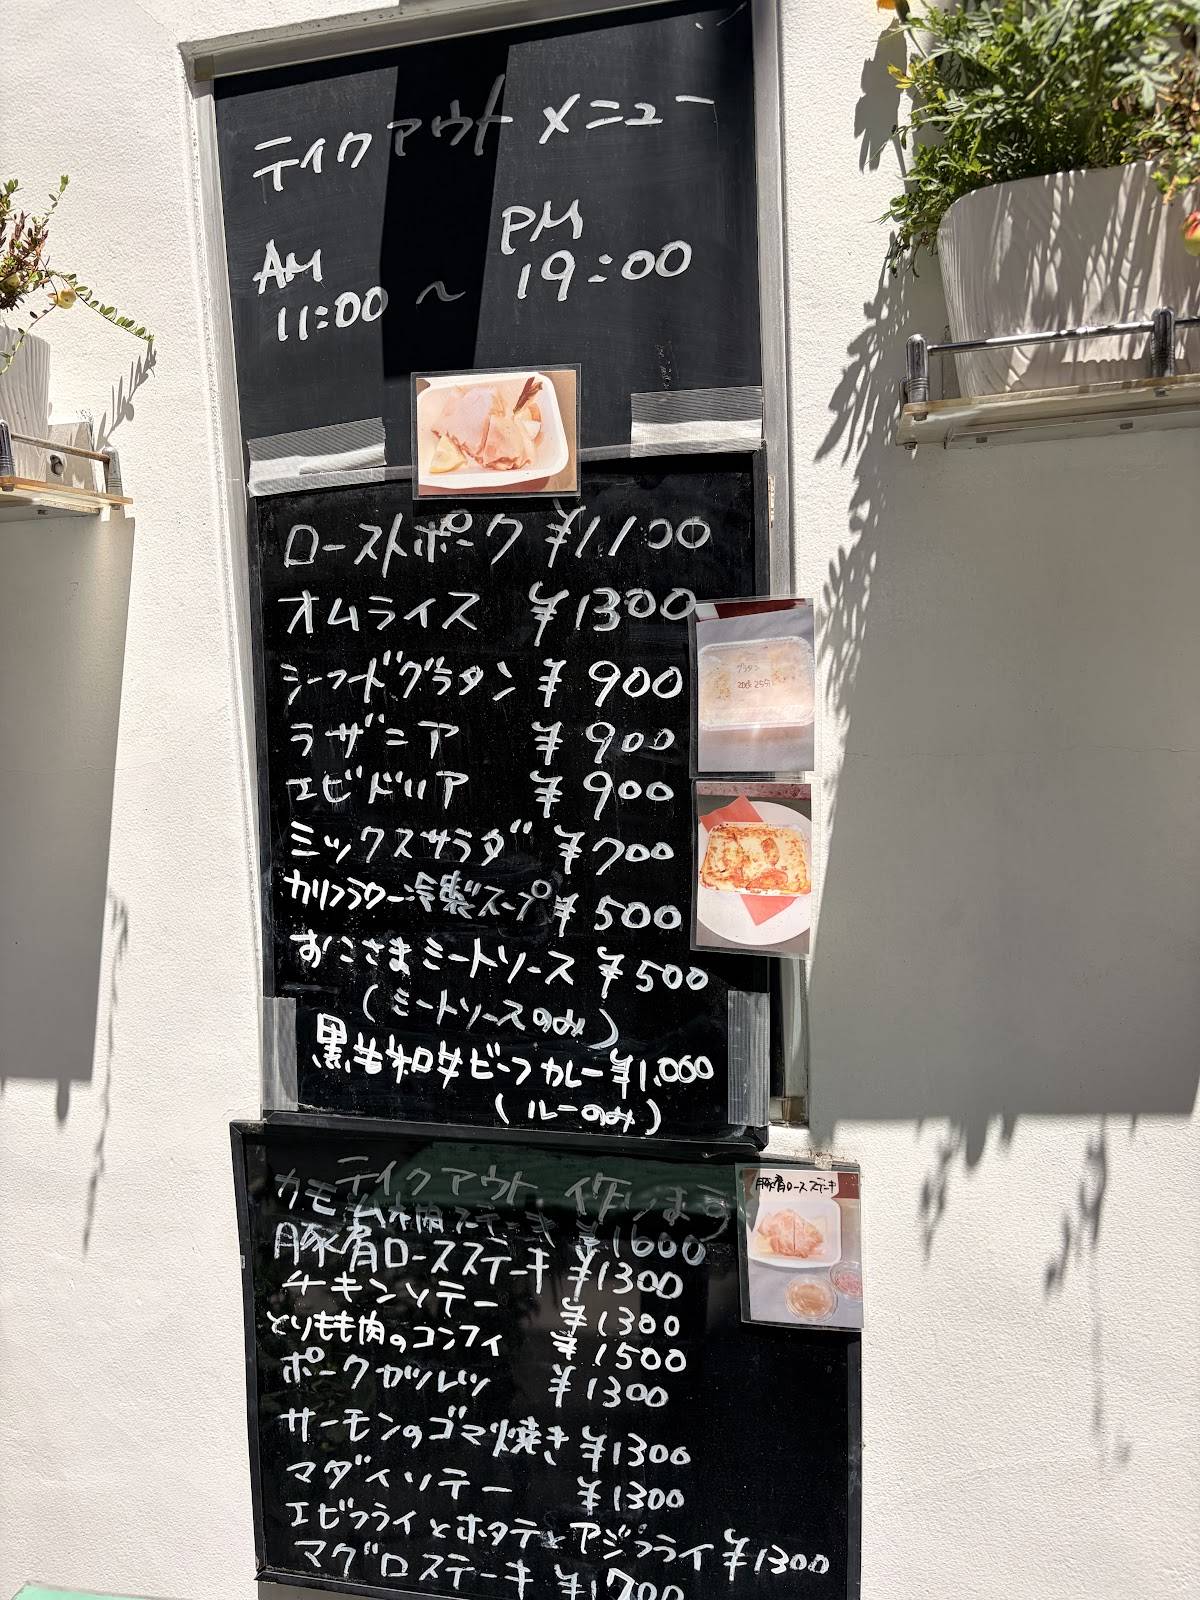 テイクアウト メニュー
AM 11:00 ~ PM 19:00
ローストポーク ¥1100
オムライス ¥1300
シーフードグラタン ¥900
ラザニア ¥900
エビドリア ¥900
ミックスサラダ ¥700
カリフラワー冷製スープ ¥500
おこさまミートソース ¥500
(ミートソースのみ)
黒毛和牛ビーフカレー ¥1,000
(ルーのみ)
グラタン
テイクアウト 作ります
カモムネ肉ステーキ ¥1600
豚肩ロースステーキ ¥1300
チキンソテー ¥1300
とりもも肉のコンフィ ¥1500
ポークカツレツ ¥1300
サーモンのゴマ焼き ¥1300
マダイソテー ¥1300
エビフライとホタテとアジフライ ¥1300
マグロステーキ ¥1700
豚肩ロースステーキ